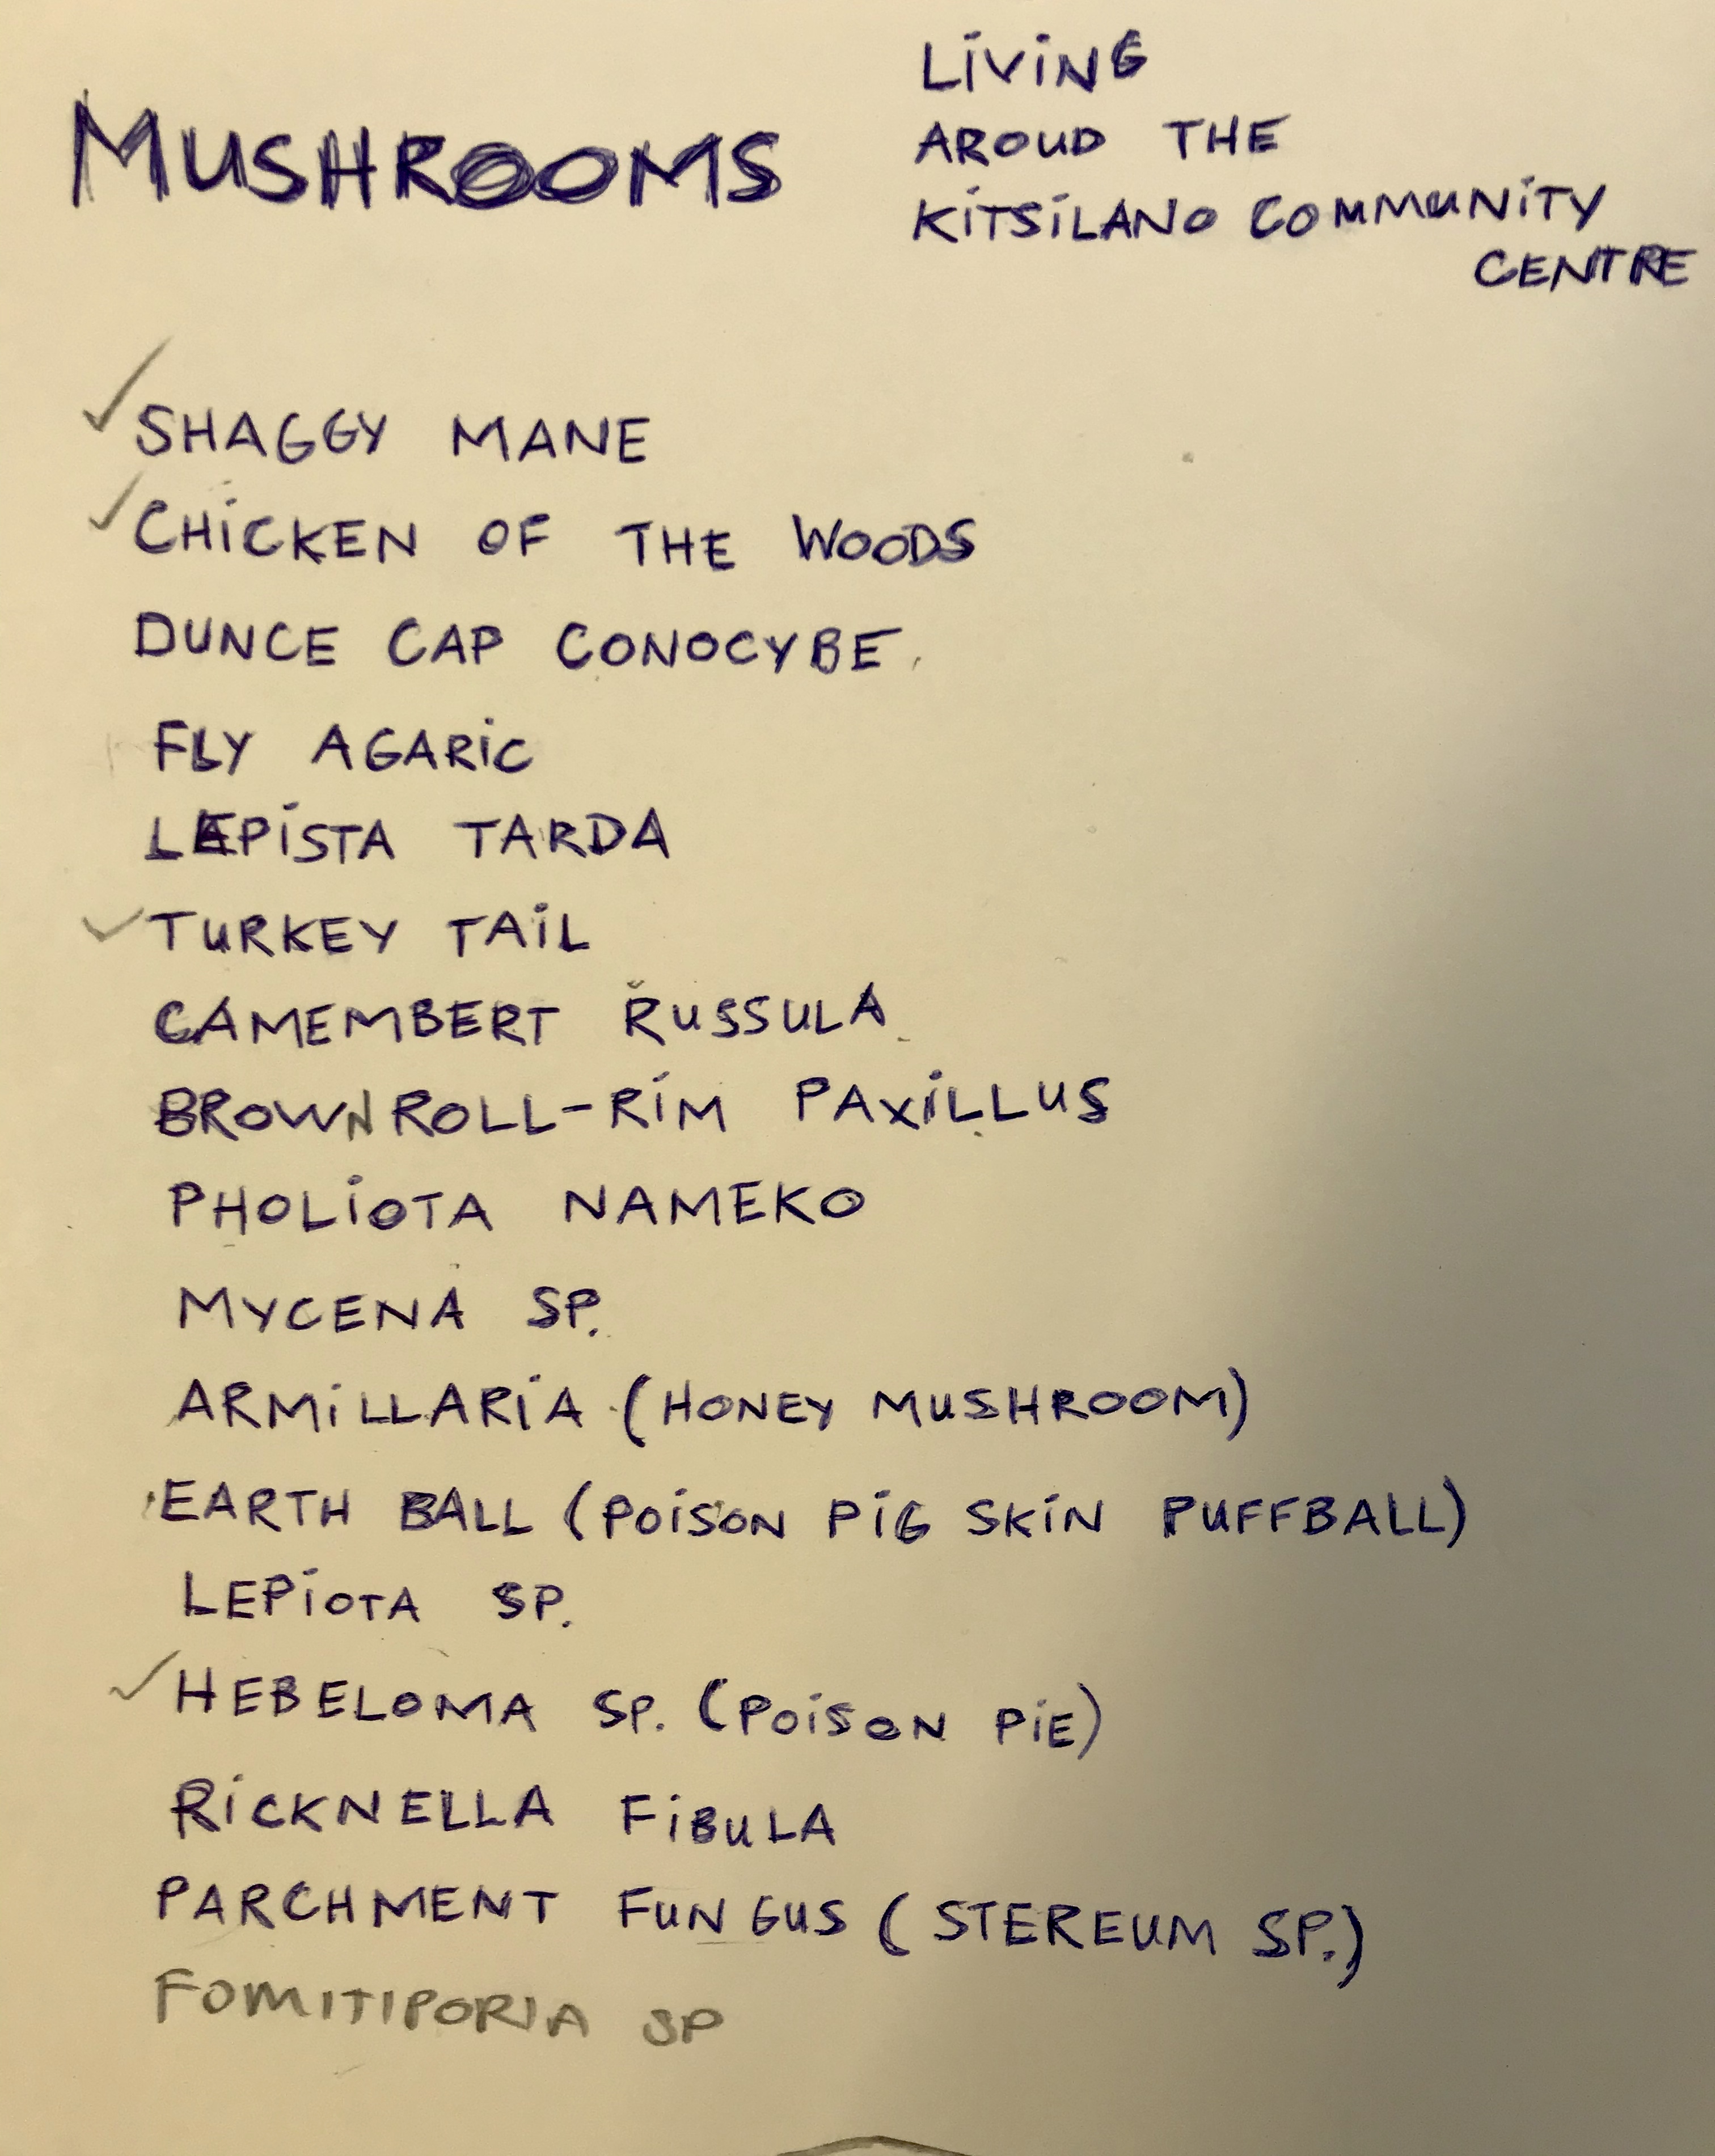 MUSHROOMS
LiViNG
AROUD THE
KiTSiLANO COMMUNiTY
CENTRE
✓ SHAGGY MANE
✓ CHiCKEN OF THE WOODS
DUNCE CAP CONOCYBE
FLY AGARiC
LEPiSTA TARDA
✓ TURKEY TAiL
CAMEMBERT RUSSULA
BROWN ROLL-RiM PAXiLLUS
PHOLiOTA NAMEKO
MYCENA SP.
ARMiLLARiA (HONEY MUSHROOM)
EARTH BALL (POiSON PiG SKiN PUFFBALL)
LEPiOTA SP.
✓ HEBELOMA SP. (POiSON PiE)
RiCKNELLA FiBULA
PARCHMENT FUNGUS (STEREUM SP.)
FOMITIPORIA SP